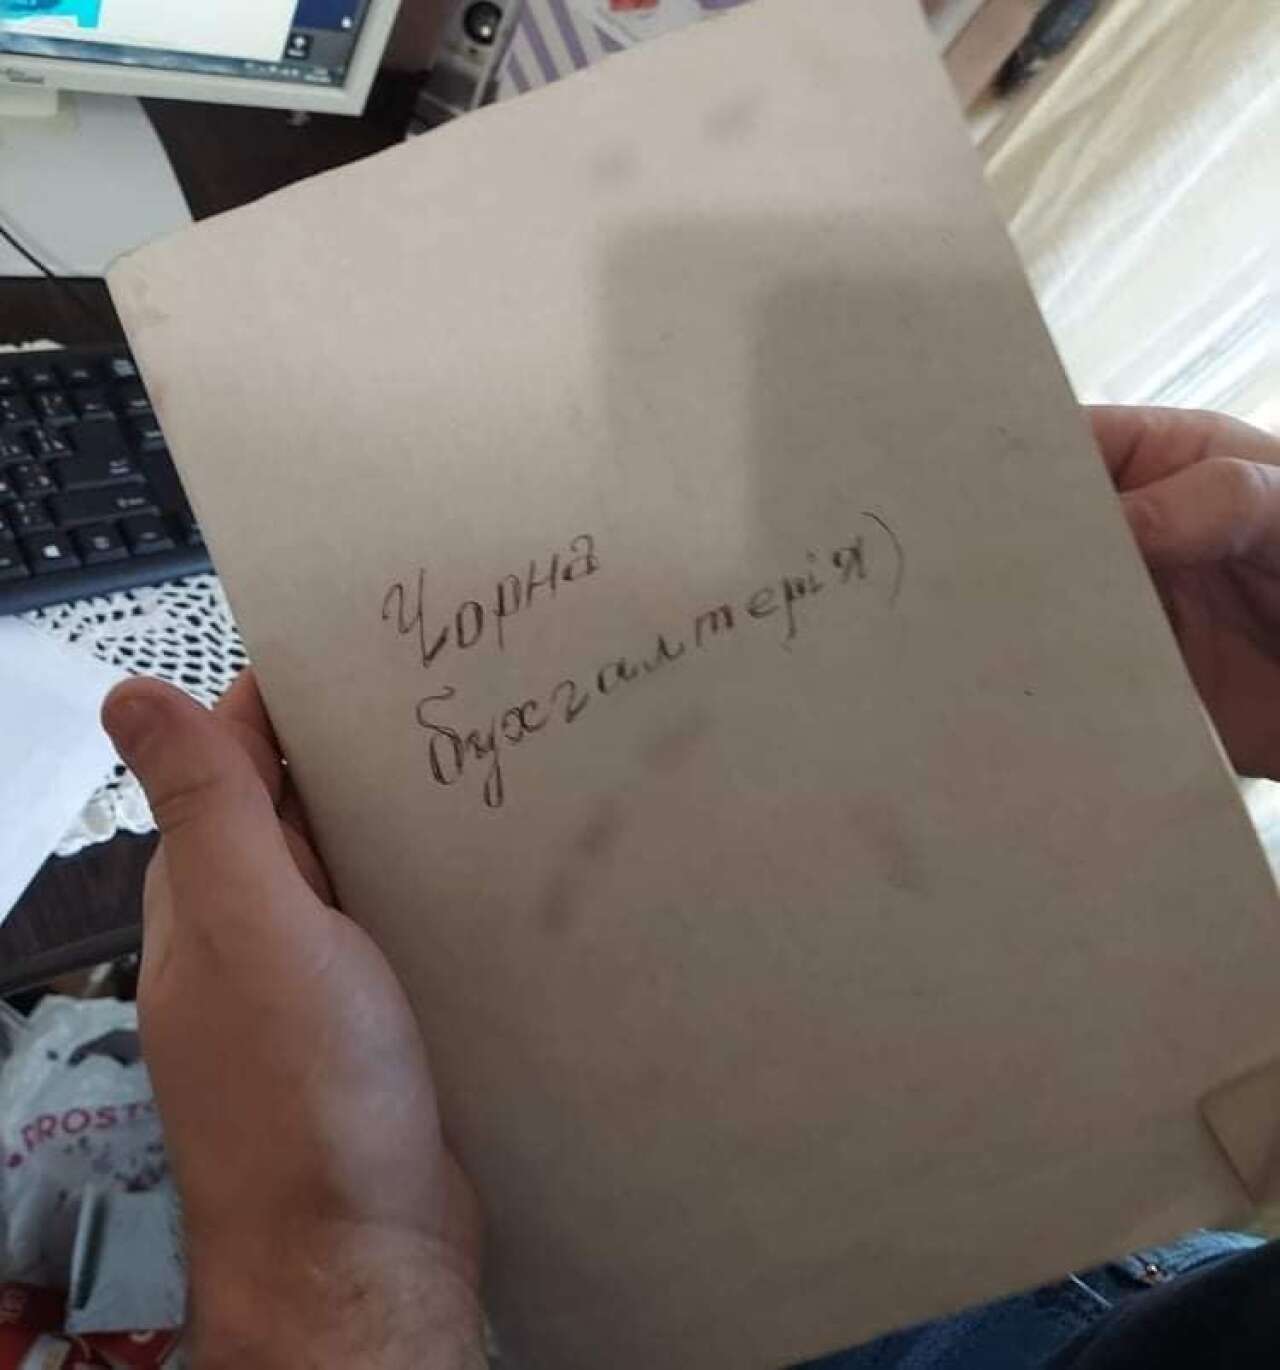 Чорна
бухгалтерія)
PROSTO